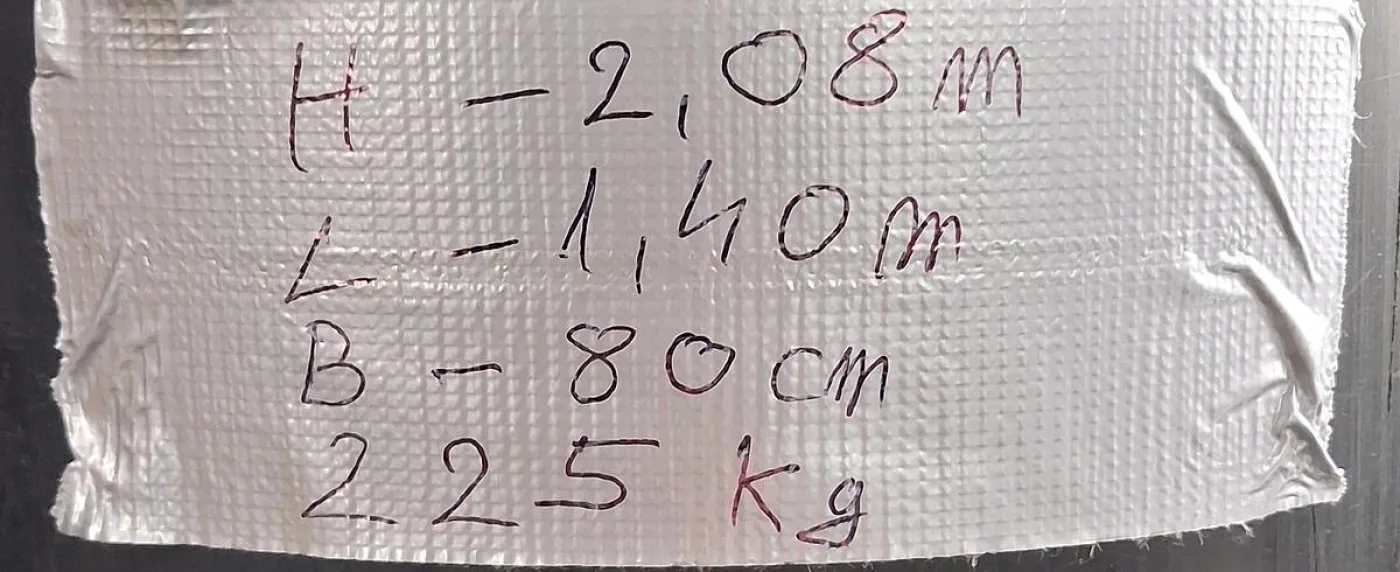 H - 2,08 m
L - 1,40 m
B - 80 cm
225 kg